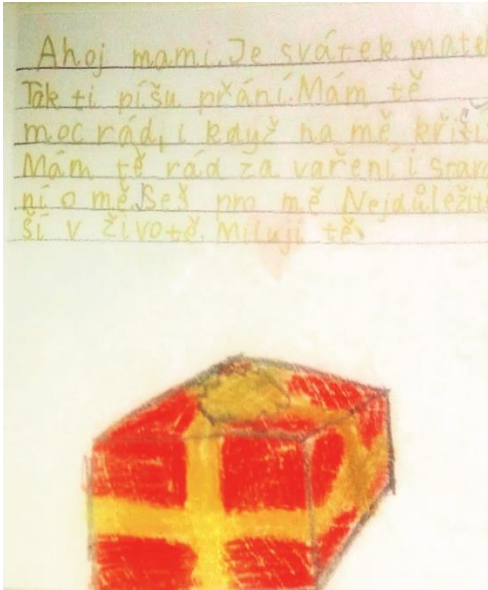 Ahoj mami. Je svátek mate
Tak ti píšu přání. Mám tě
moc rád, i když na mě křičí
Mám tě rád za vaření i stara
ní o mě. Seš pro mě Nejdůležitě
ší v životě. Miluji tě.